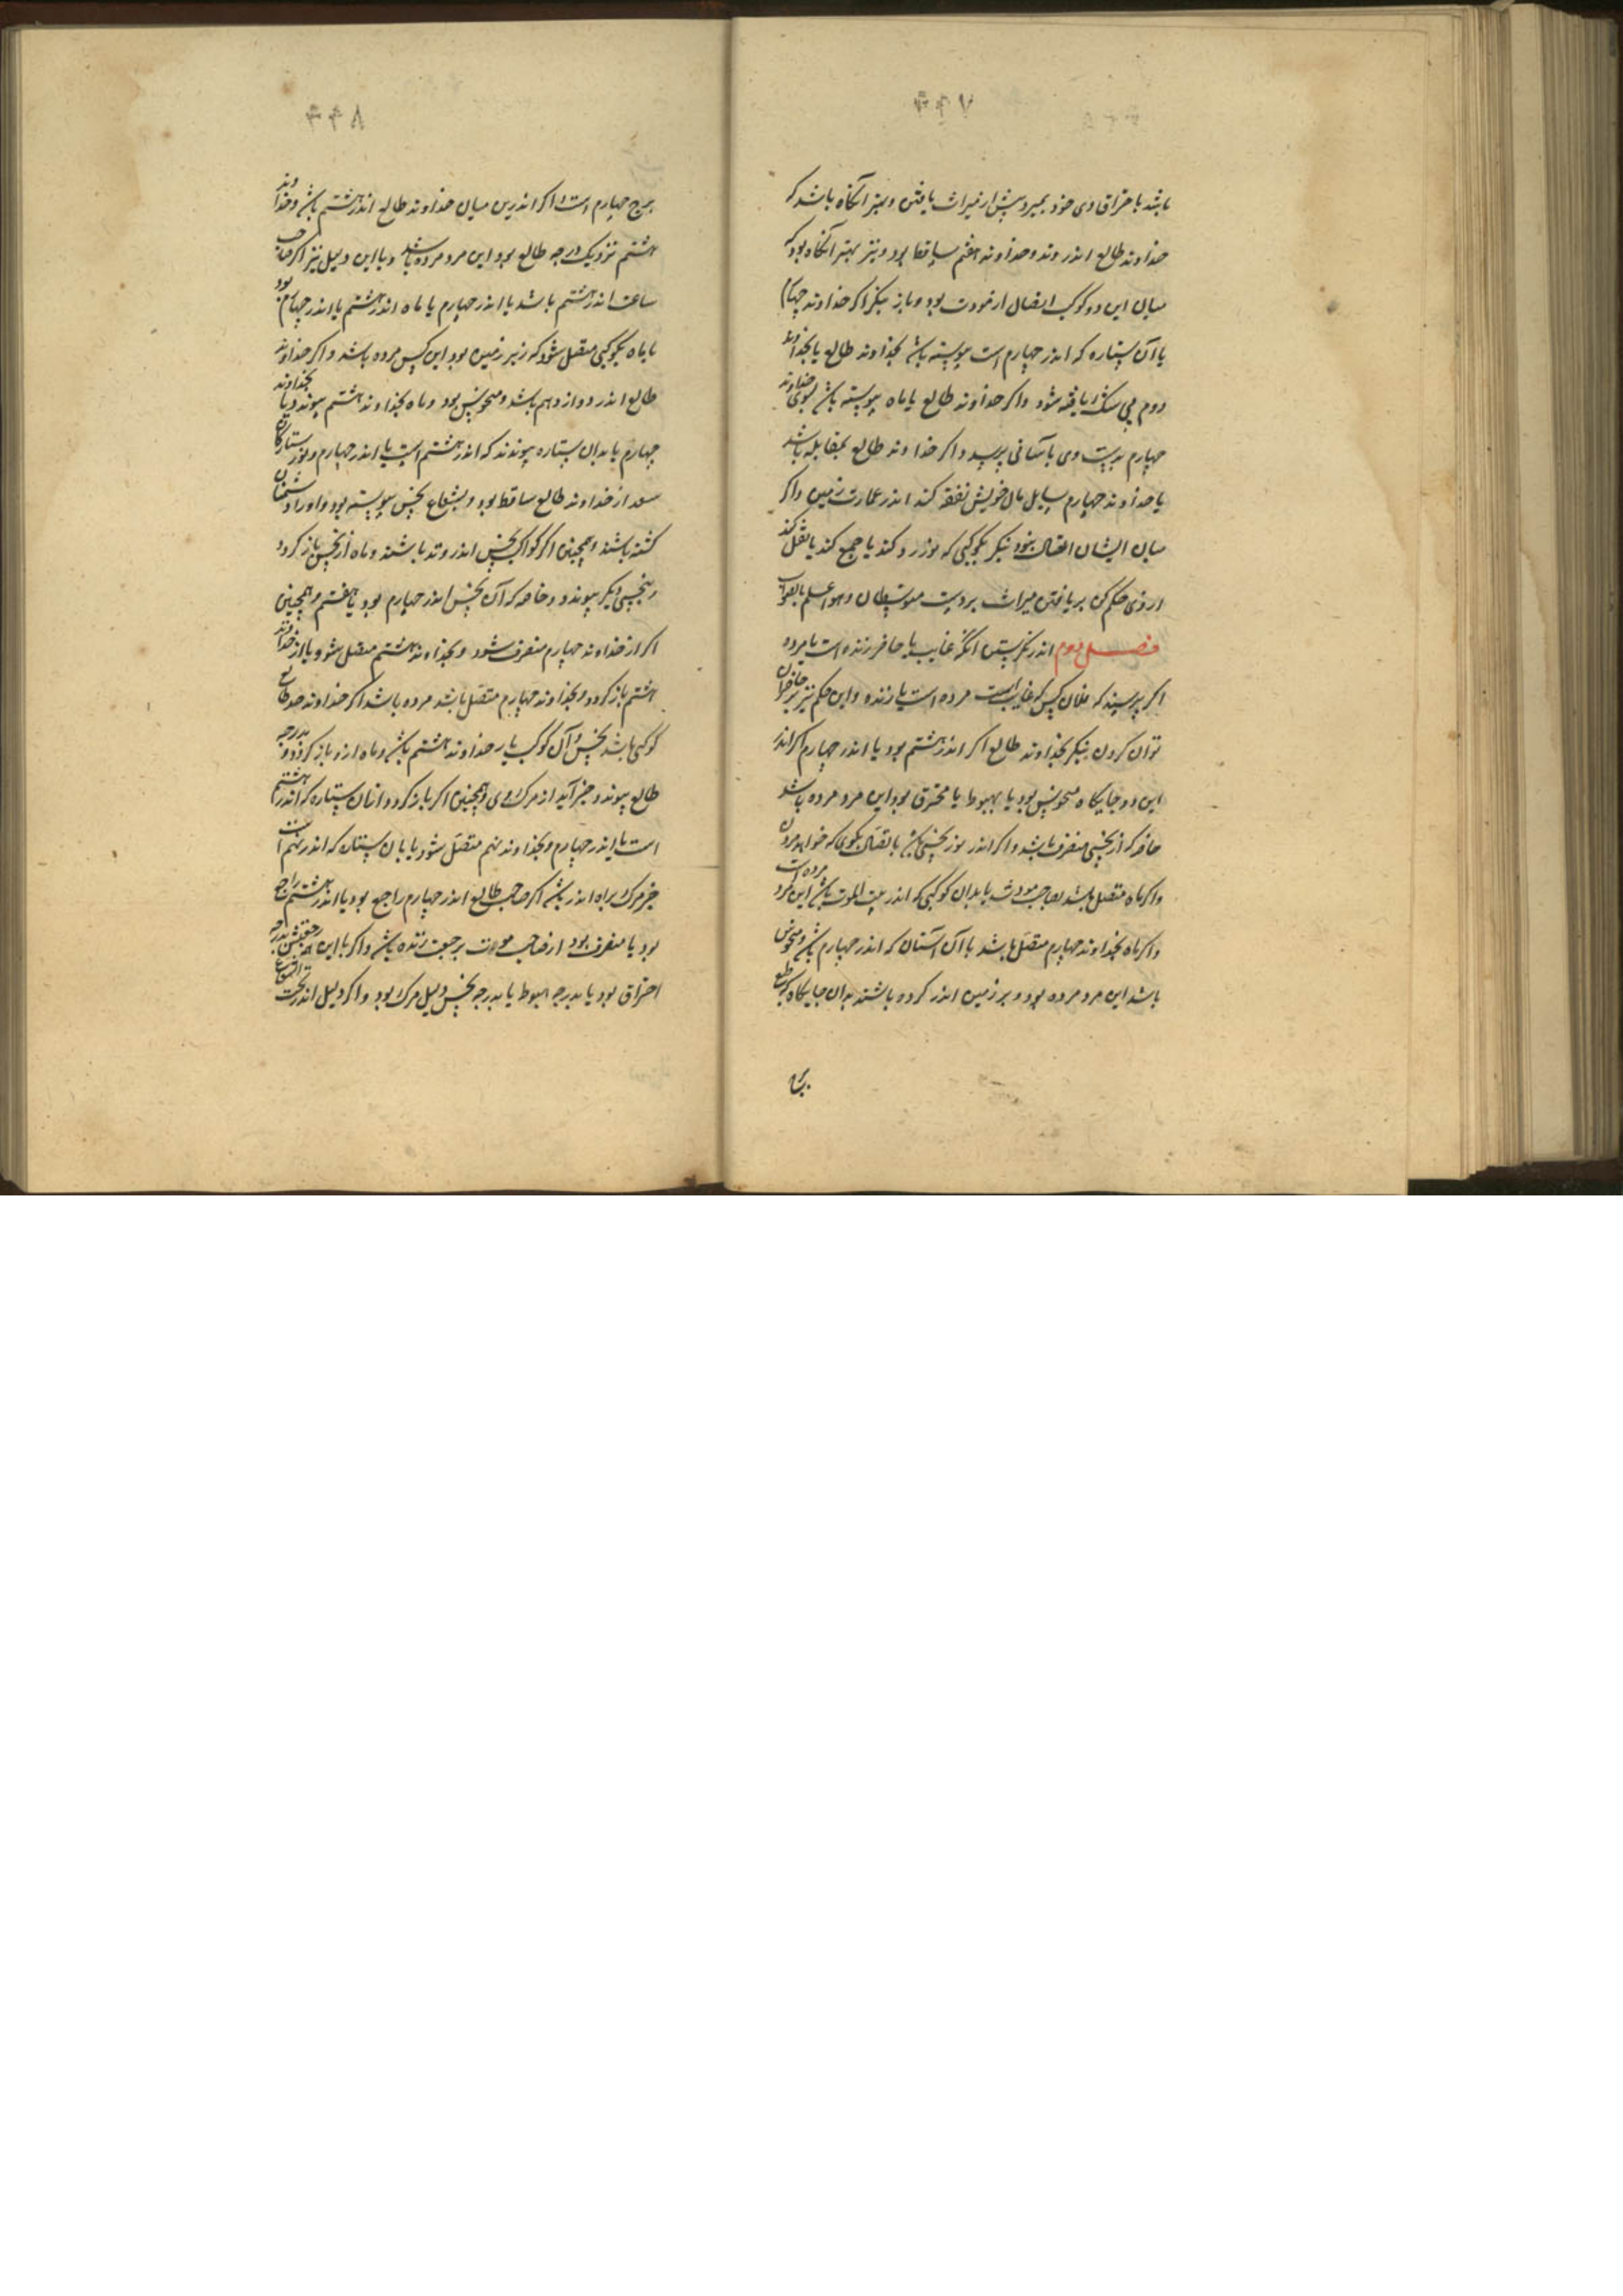 ۴۴۷
باشد با حراق وی خود بمیرد پیش از میراث یافتن و بهتر آنگاه باشد که
خداوند طالع اندر وتد و خداوند هفتم ساقط بود و نیز بهتر آنگاه بود که
میان این دو کوکب اتصال از مودت بود و باز بنگر اگر خداوند چهارم
یا آن ستاره که اندر چهارم است پیوسته باشد بخداوند طالع یا بخداوند
دوم بی شک یافته شود و اگر خداوند طالع یا ماه پیوسته باشد بسوی خداوند
چهارم بدست وی بآسانی برسد و اگر خداوند طالع بمقابله باشد
یا خداوند چهارم سایل مال خویش نفقه کند اندر عمارت زمین و اگر
میان ایشان اتصال نبود بنگر بکوکبی که نور رد کند یا جمع کند یا نقل کند
از وی حکم کن بر یافتن میراث بر دست متوسطان و هو اعلم بالصواب
فصل دوم اندر نگرستن آنکه غایب یا حاضر زنده است یا مرده
اگر پرسند که فلان کس که غایب است مرده است یا زنده و این حکم نیز بر حاضران
توان کردن بنگر بخداوند طالع اگر اندر هشتم بود یا اندر چهارم اگر اندر
این دو جایگاه منحوس بود یا بهبوط یا محترق بود این مرد مرده باشد
خاصه که از نحسی منصرف باشد و اگر اندر نور نحسی باشد باتصال بگوی که خواهد مردن
و اگر ماه متصل باشد بصاحب موتش یا بدان کوکبی که اندر بیت الموت باشد این مرد مرده است
و اگر ماه بخداوند چهارم متصل باشد یا آن آستان که اندر چهارم باشد و منحوس
باشد این مرد مرده بود و بر زمین اندر کرده باشند بدان جایگاه که طبع
برج
۴۴۸
برج چهارم است و اگر اندرین میان خداوند طالع اندر هشتم باشد و خداوند
هشتم نزدیک درجه طالع بود این مرد مرده باشد و با این دلیل نیز اگر صاحب
ساعت اندر هشتم باشد یا اندر چهارم یا ماه اندر هشتم یا اندر چهارم بود
یا ماه بکوکبی متصل شود که زیر زمین بود این کس مرده باشد و اگر خداوند
طالع اندر دوازدهم باشد و منحوس بود و ماه بخداوند هشتم پیوندد یا بخداوند
چهارم یا بدان ستاره پیوندد که اندر هشتم است یا اندر چهارم و نور ستارگان
سعد از خداوند طالع ساقط بود و بشعاع نحس پیوسته بود و او را دشمنان
کشته باشند و همچنین اگر کواکب نحس اندر وتد باشند و ماه از نحس باز گردد
و بنحسی دیگر پیوندد و خاصه که آن نحس اندر چهارم بود یا هفتم و همچنین
اگر از خداوند چهارم منصرف شود و بخداوند هشتم متصل شود یا از خداوند
هشتم باز گردد و بخداوند چهارم متصل باشد مرده باشد اگر خداوند حد طالع
کوکبی باشد نحس و آن کوکب یار خداوند هشتم باشد و ماه از و باز گردد و بدرجه
طالع پیوندد خبر آید از مرگ وی و همچنین اگر باز گردد از آن ستاره که اندر هشتم
است یا اندر چهارم و بخداوند نهم متصل شود یا بآن ستاره که اندر نهم است
خبر مرگ براه اندر باشد اگر صاحب طالع اندر چهارم راجع بود یا اندر هشتم راجع
بود یا منصرف بود از صاحب موت برجعت زنده باشد و اگر با این همه رجعتش بدرجه
احتراق بود یا بدرجه هبوط یا بدرجه نحس دلیل مرگ بود و اگر دلیل اندر تحت الشعاع